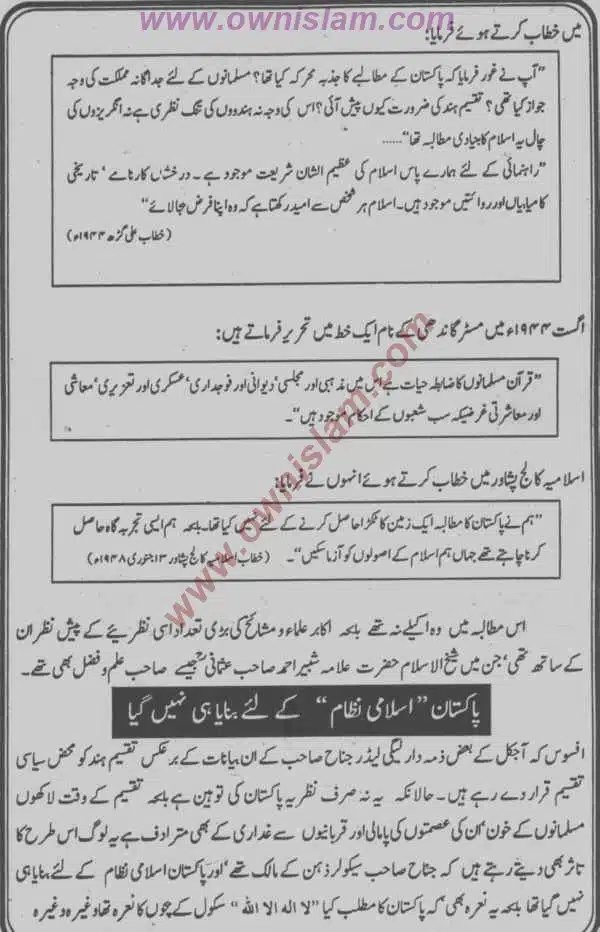 www.ownislam.com
میں خطاب کرتے ہوئے فرمایا:
”آپ نے غور فرمایا کہ پاکستان کے مطالبے کا جذبہ محرکہ کیا تھا؟ مسلمانوں کے لئے جداگانہ مملکت کی وجہ
جواز کیا تھی؟ تقسیم ہند کی ضرورت کیوں پیش آئی؟ اس کی وجہ نہ ہندووں کی تنگ نظری ہے نہ انگریزوں کی
چال یہ اسلام کا بنیادی مطالبہ تھا“......
”راہنمائی کے لئے ہمارے پاس اسلام کی عظیم الشان شریعت موجود ہے۔ درخشاں کارنامے‘ تاریخی
کامیابیاں اور روائتیں موجود ہیں۔ اسلام ہر شخص سے امید رکھتا ہے کہ وہ اپنا فرض بجالائے“
(خطاب علی گڑھ ۱۹۴۴ء)
اگست ۱۹۴۴ء میں مسٹر گاندھی کے نام ایک خط میں تحریر فرماتے ہیں:
”قرآن مسلمانوں کا ضابطہ حیات ہے اس میں مذہبی اور مجلسی‘ دیوانی اور فوجداری‘ عسکری اور تعزیری‘ معاشی
اور معاشرتی غرضیکہ سب شعبوں کے احکام موجود ہیں“۔
اسلامیہ کالج پشاور میں خطاب کرتے ہوئے انہوں نے فرمایا:
”ہم نے پاکستان کا مطالبہ ایک زمین کا ٹکڑا حاصل کرنے کے لئے نہیں کیا تھا۔ بلکہ ہم ایسی تجربہ گاہ حاصل
کرنا چاہتے تھے جہاں ہم اسلام کے اصولوں کو آزما سکیں“۔ (خطاب اسلامیہ کالج پشاور ۱۳ جنوری ۱۹۴۸ء)
اس مطالبہ میں وہ اکیلے نہ تھے بلکہ اکابر علماء و مشائخ کی بڑی تعداد اسی نظریئے کے پیش نظر ان
کے ساتھ تھی‘ جن میں شیخ الاسلام حضرت علامہ شبیر احمد صاحب عثمانیؒ جیسے صاحب علم و فضل بھی تھے۔
پاکستان ”اسلامی نظام“ کے لئے بنایا ہی نہیں گیا
افسوس کہ آجکل کے بعض ذمہ دار لیگی لیڈر جناح صاحب کے ان بیانات کے برعکس تقسیم ہند کو محض سیاسی
تقسیم قرار دے رہے ہیں۔ حالانکہ یہ نہ صرف نظریہ پاکستان کی توہین ہے بلکہ تقسیم کے وقت لاکھوں
مسلمانوں کے خون‘ ان کی عصمتوں کی پامالی اور قربانیوں سے غداری کے بھی مترادف ہے یہ لوگ اس طرح کا
تاثر بھی دیتے رہتے ہیں کہ جناح صاحب سیکولر ذہن کے مالک تھے‘ اور پاکستان اسلامی نظام کے لئے بنایا ہی
نہیں گیا تھا بلکہ یہ نعرہ بھی‘ کہ پاکستان کا مطلب کیا ”لا الہ الا اللہ“ سکول کے بچوں کا نعرہ تھا وغیرہ وغیرہ
www.ownislam.com